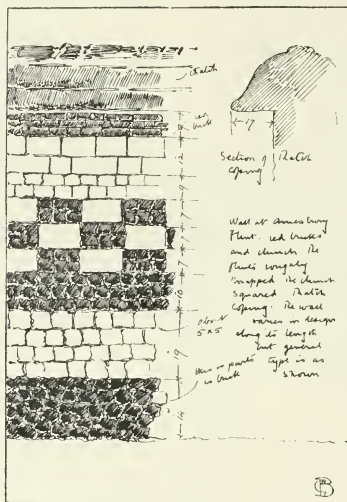 thatch
red
brick
8
12
9
7
7
7
10
19
14
17
Section of thatch
coping
Wall at Amesbury
Flint. red bricks
and clunch the
flints roughly
knapped the clunch
squared thatch
coping. The wall
varies in design
along its length
but general
type is as
shown
5 x 5
in parts
is brick